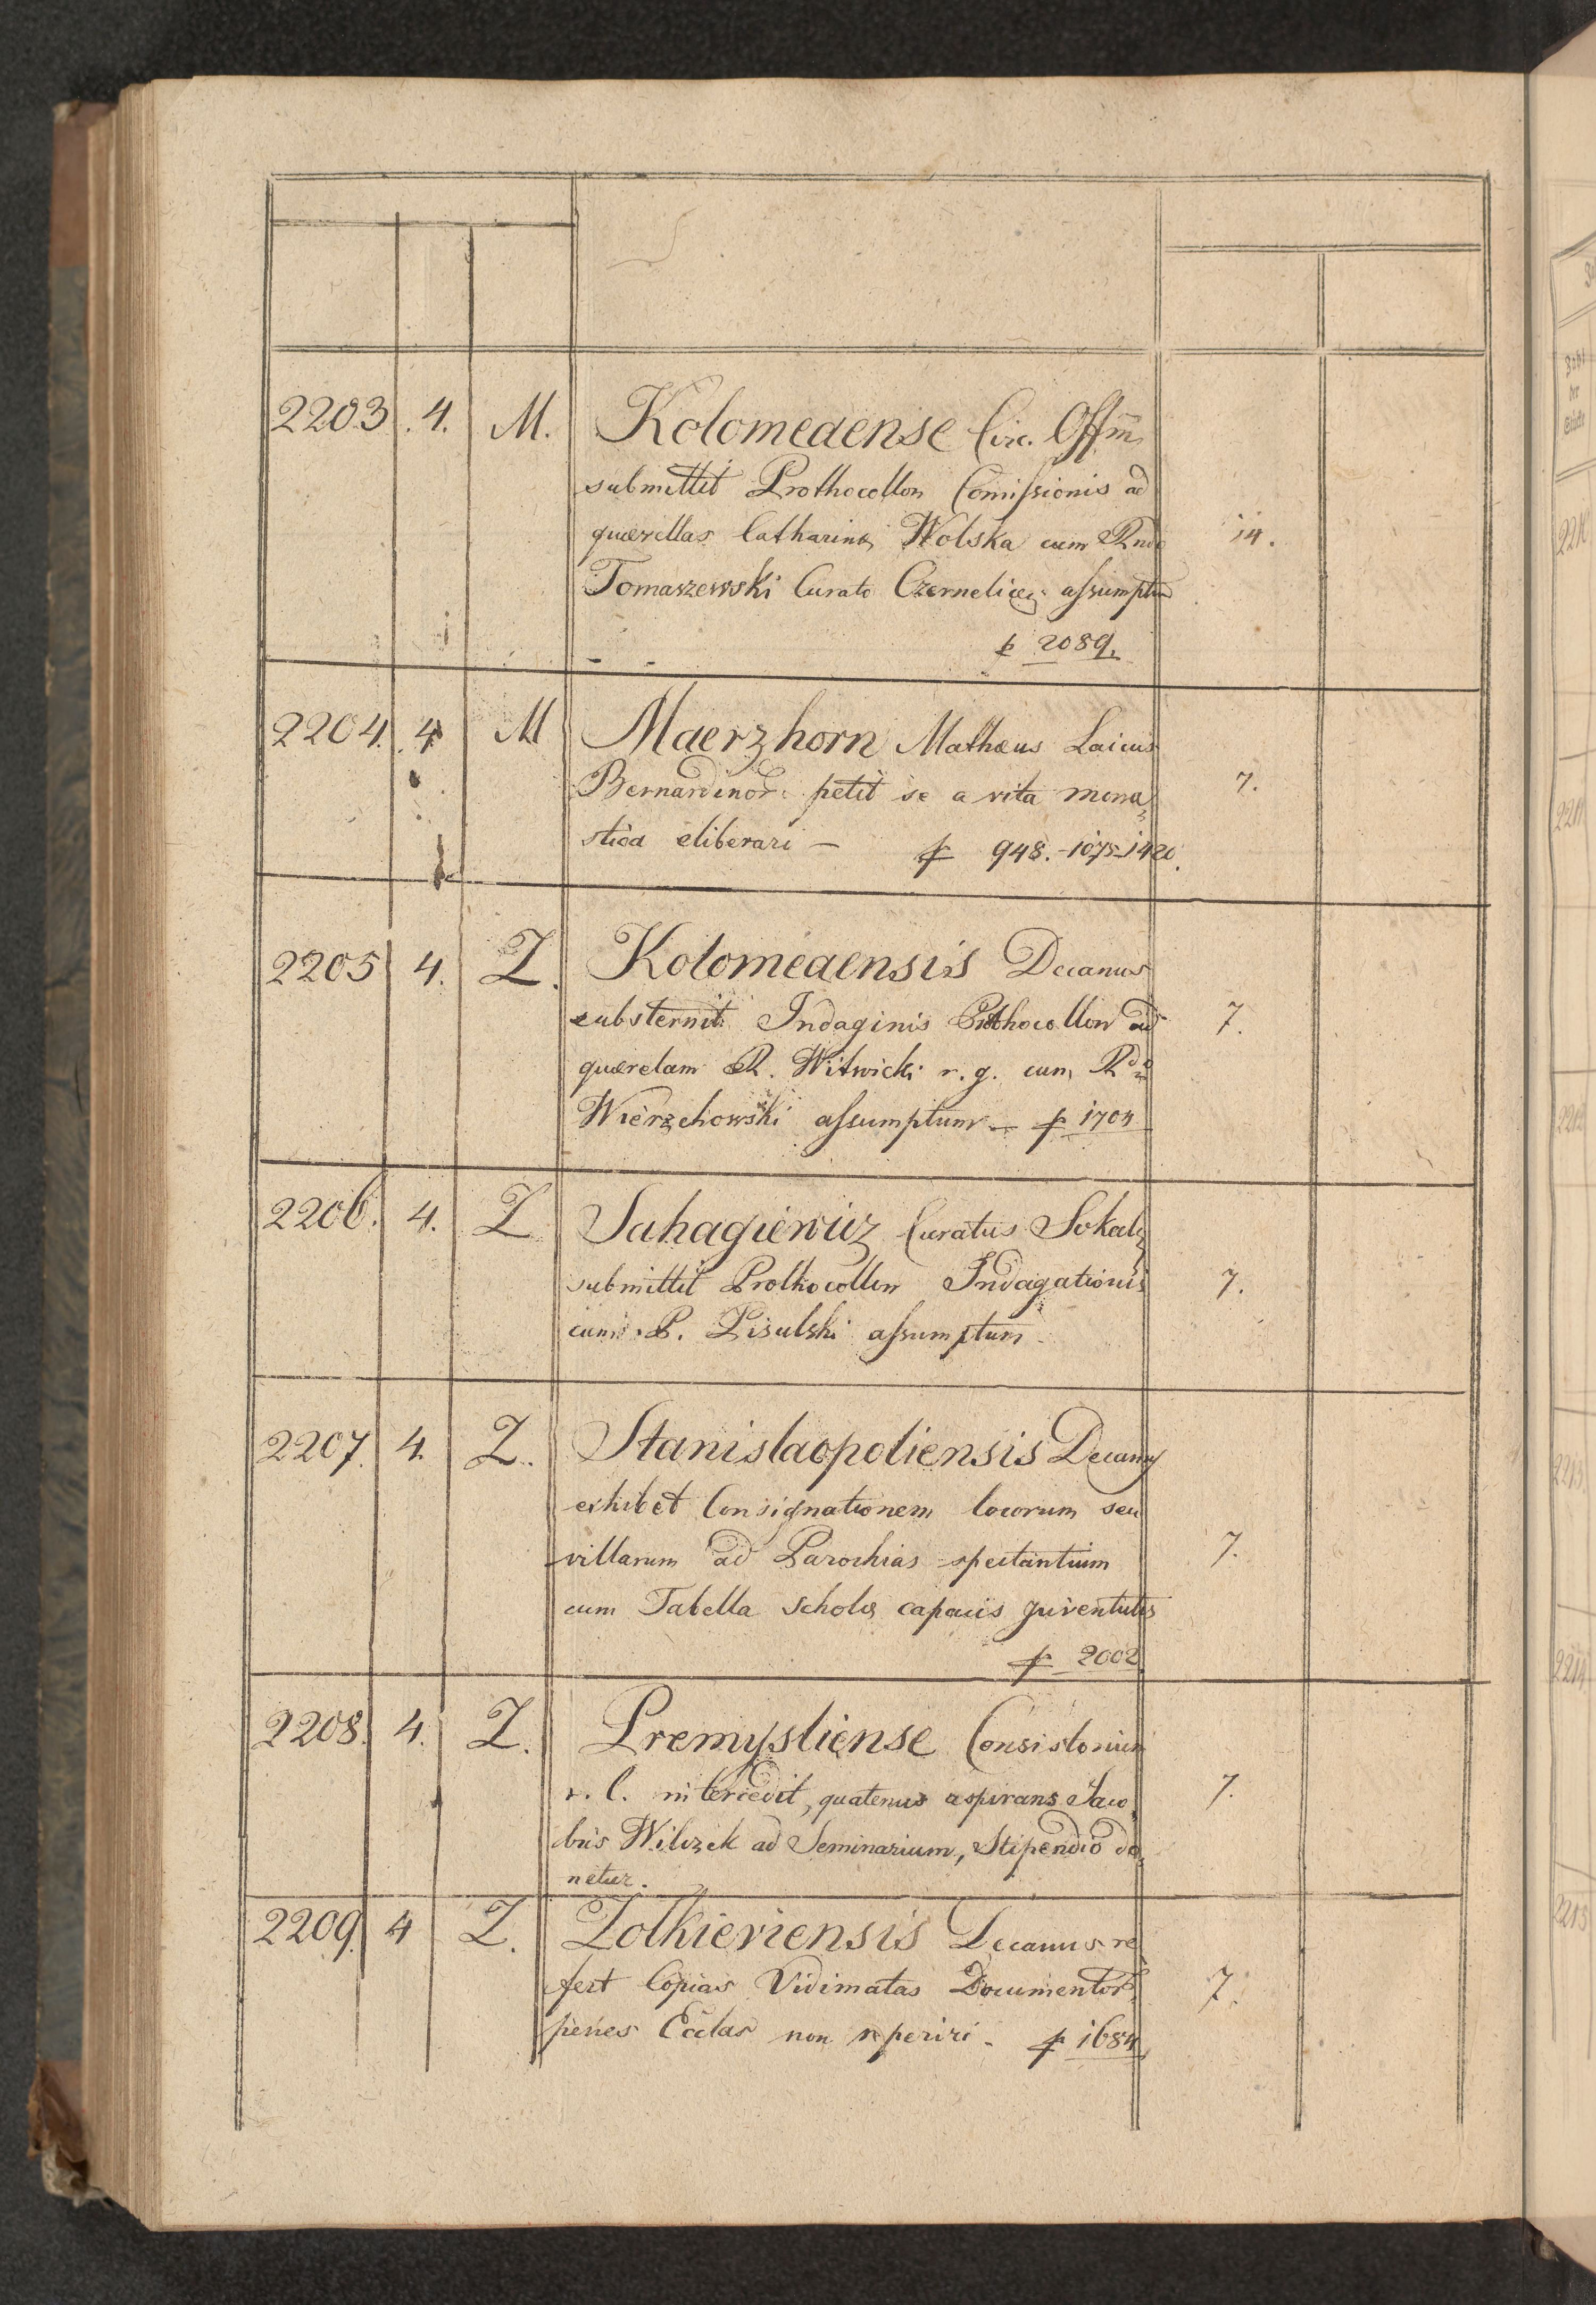 2203. 4. M. Kolomeaense Circ. Offm̄
submittit Prothocollon Comissionis ad
quærellas Catharinæ Wolska cum Rndo
14.
Tomaszewski Curato Czernelicę: assumptum
p 2089.
2204. 4 M Maerzhorn Mathæus Laicus
Bernardinor: petit se a vita mona
7.
stica eliberari — p 948. - 1075 - 1420.
2205 4. Z. Kolomeaensis Decanus
substernit Indaginis Prothocollon ad
7.
quærelam R. Witwicki r. g. cum Rdo
Wierzchowski assumptum — p 1704
2206. 4. Z Sahagiewicz Curatus Sokal:
submittit Prothocollon Indagationis
7.
cum P. Pisulski assumptum
2207. 4. Z. Stanislaopoliensis Decanus
exhibet Consignationem locorum seu
villarum ad Parochias spectantium
7.
cum Tabella scholæ capacis Juventutis
p 2002
2208. 4. Z. Premysliense Consistorium
r. l. intercedit, quatenus aspirans Jaco
7.
bus Wilczek ad Seminarium, Stipendio do
netur.
2209. 4 Z. Zolkieviensis Decanus re
fert Copias Vidimatas Documentor:
7.
penes Ecclas non reperiri - p 1684